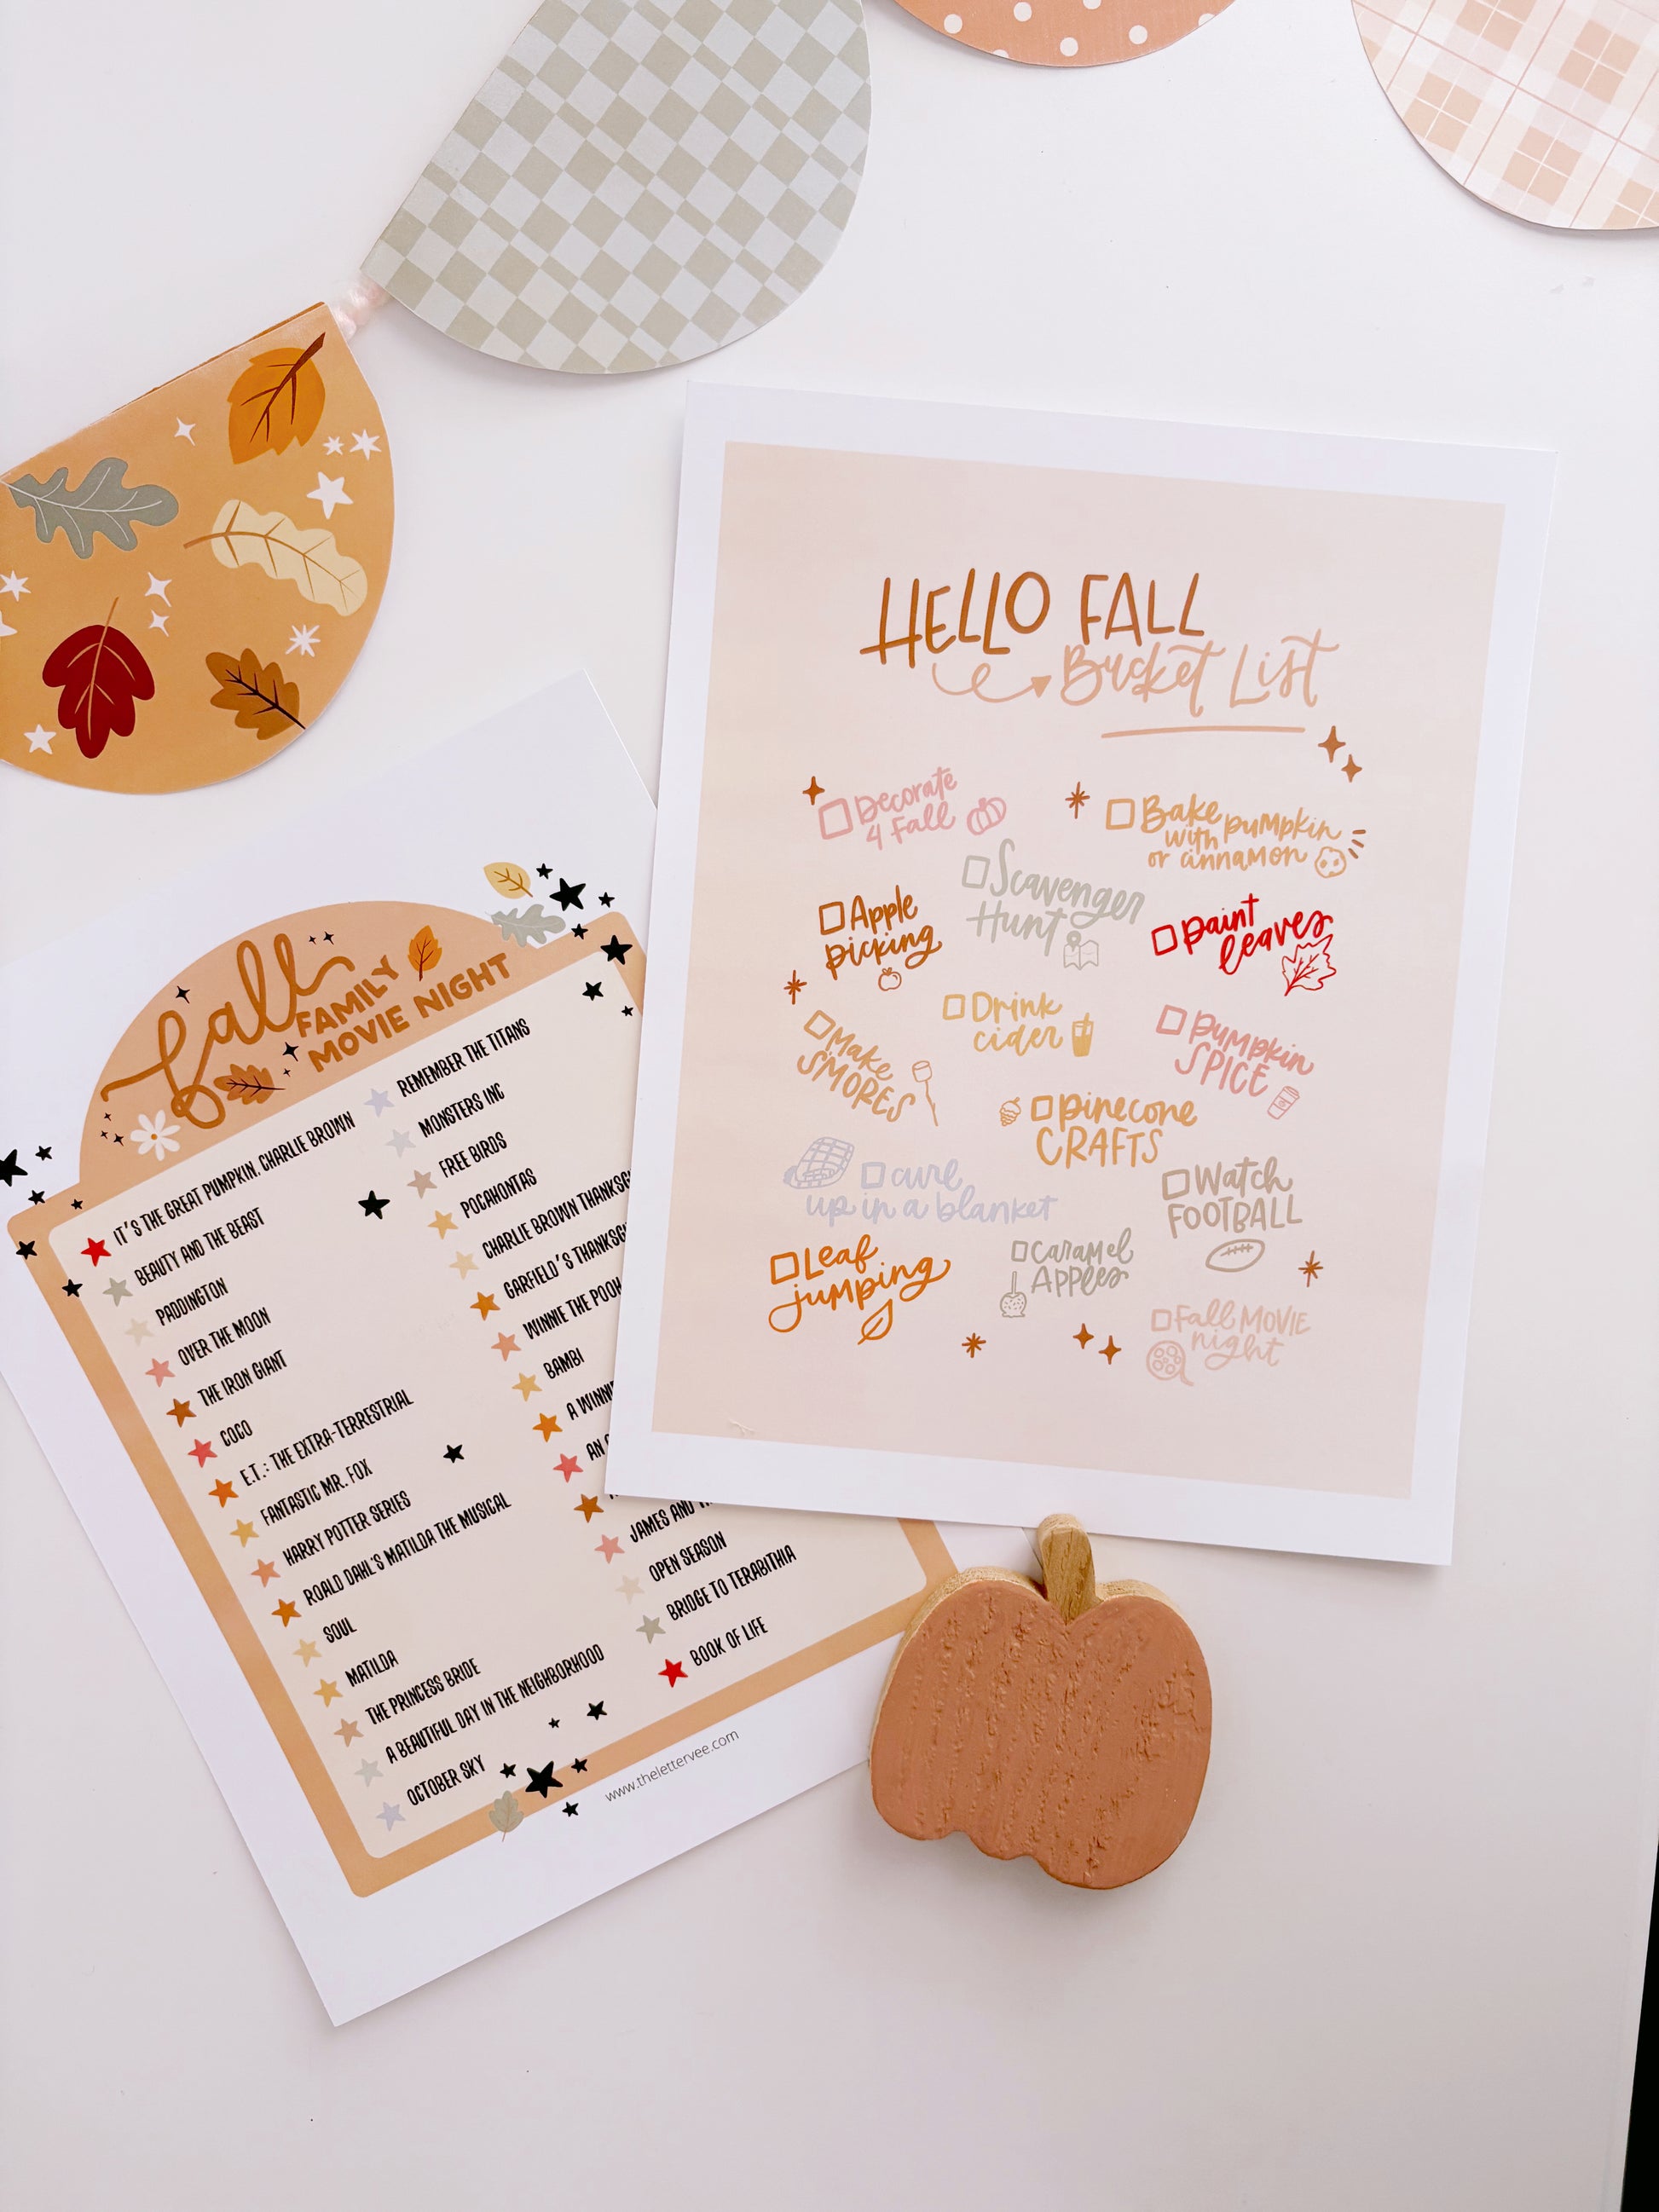 HELLO FALL
Bucket List
Decorate
4 Fall
Bake pumpkin
with
or cinnamon
Scavenger
Hunt
Apple
picking
paint
leaves
Drink
cider
Make
S'MORES
pumpkin
SPICE
pinecone
CRAFTS
curl
up in a blanket
Watch
FOOTBALL
Leaf
jumping
Caramel
Apples
Fall MOVIE
night
fall
FAMILY
MOVIE NIGHT
IT'S THE GREAT PUMPKIN, CHARLIE BROWN
BEAUTY AND THE BEAST
PADDINGTON
OVER THE MOON
THE IRON GIANT
COCO
E.T.: THE EXTRA-TERRESTRIAL
FANTASTIC MR. FOX
HARRY POTTER SERIES
ROALD DAHL'S MATILDA THE MUSICAL
SOUL
MATILDA
THE PRINCESS BRIDE
A BEAUTIFUL DAY IN THE NEIGHBORHOOD
OCTOBER SKY
REMEMBER THE TITANS
MONSTERS INC
FREE BIRDS
POCAHONTAS
CHARLIE BROWN
GARFIELD'S
WINNIE THE POOH
BAMBI
A
JAMES AND
OPEN SEASON
BRIDGE TO TERABITHIA
BOOK OF LIFE
www.thelettervee.com